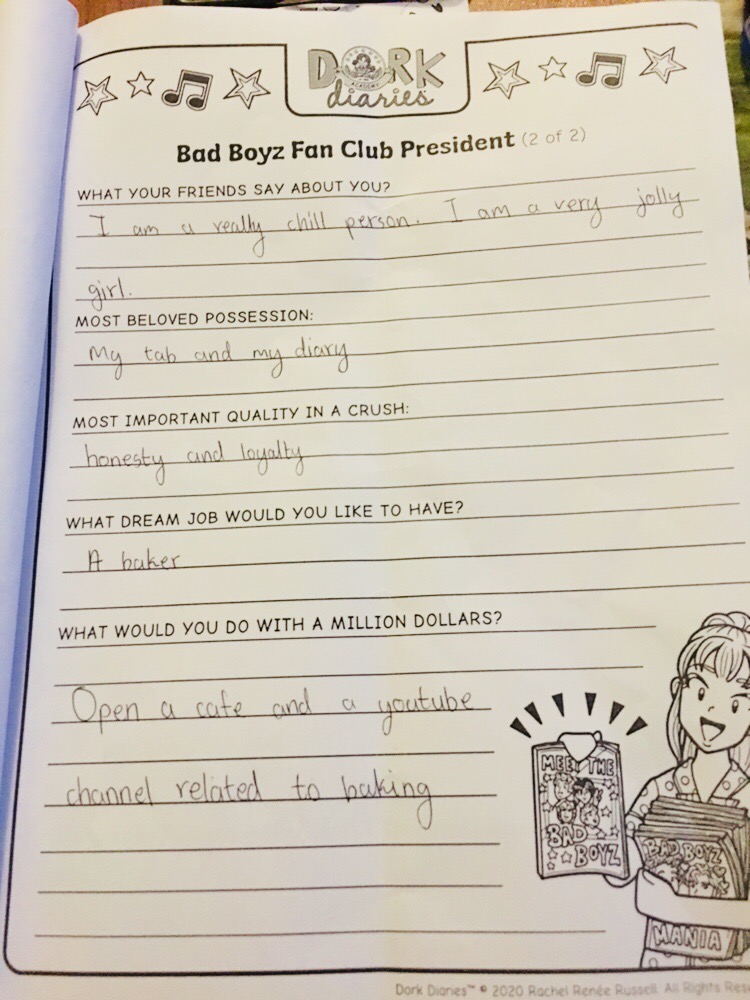 DORK
diaries
Bad Boyz Fan Club President (2 of 2)
WHAT YOUR FRIENDS SAY ABOUT YOU?
I am a really chill person. I am a very jolly
girl.
MOST BELOVED POSSESSION:
My tab and my diary
MOST IMPORTANT QUALITY IN A CRUSH:
honesty and loyalty
WHAT DREAM JOB WOULD YOU LIKE TO HAVE?
A baker
WHAT WOULD YOU DO WITH A MILLION DOLLARS?
Open a cafe and a youtube
channel related to baking
MEET THE
BAD
BOYZ
BAD BOYZ
MANIA
Dork Diaries™ © 2020 Rachel Renée Russell. All Rights